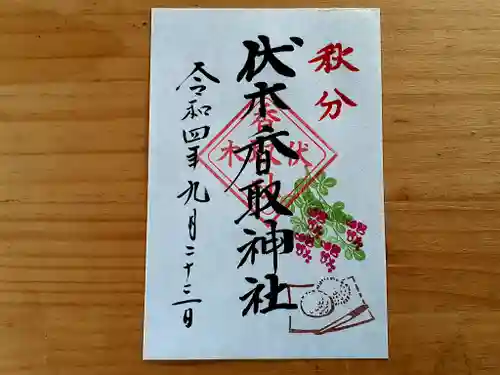 秋分
伏木香取神社
令和四年九月二十三日